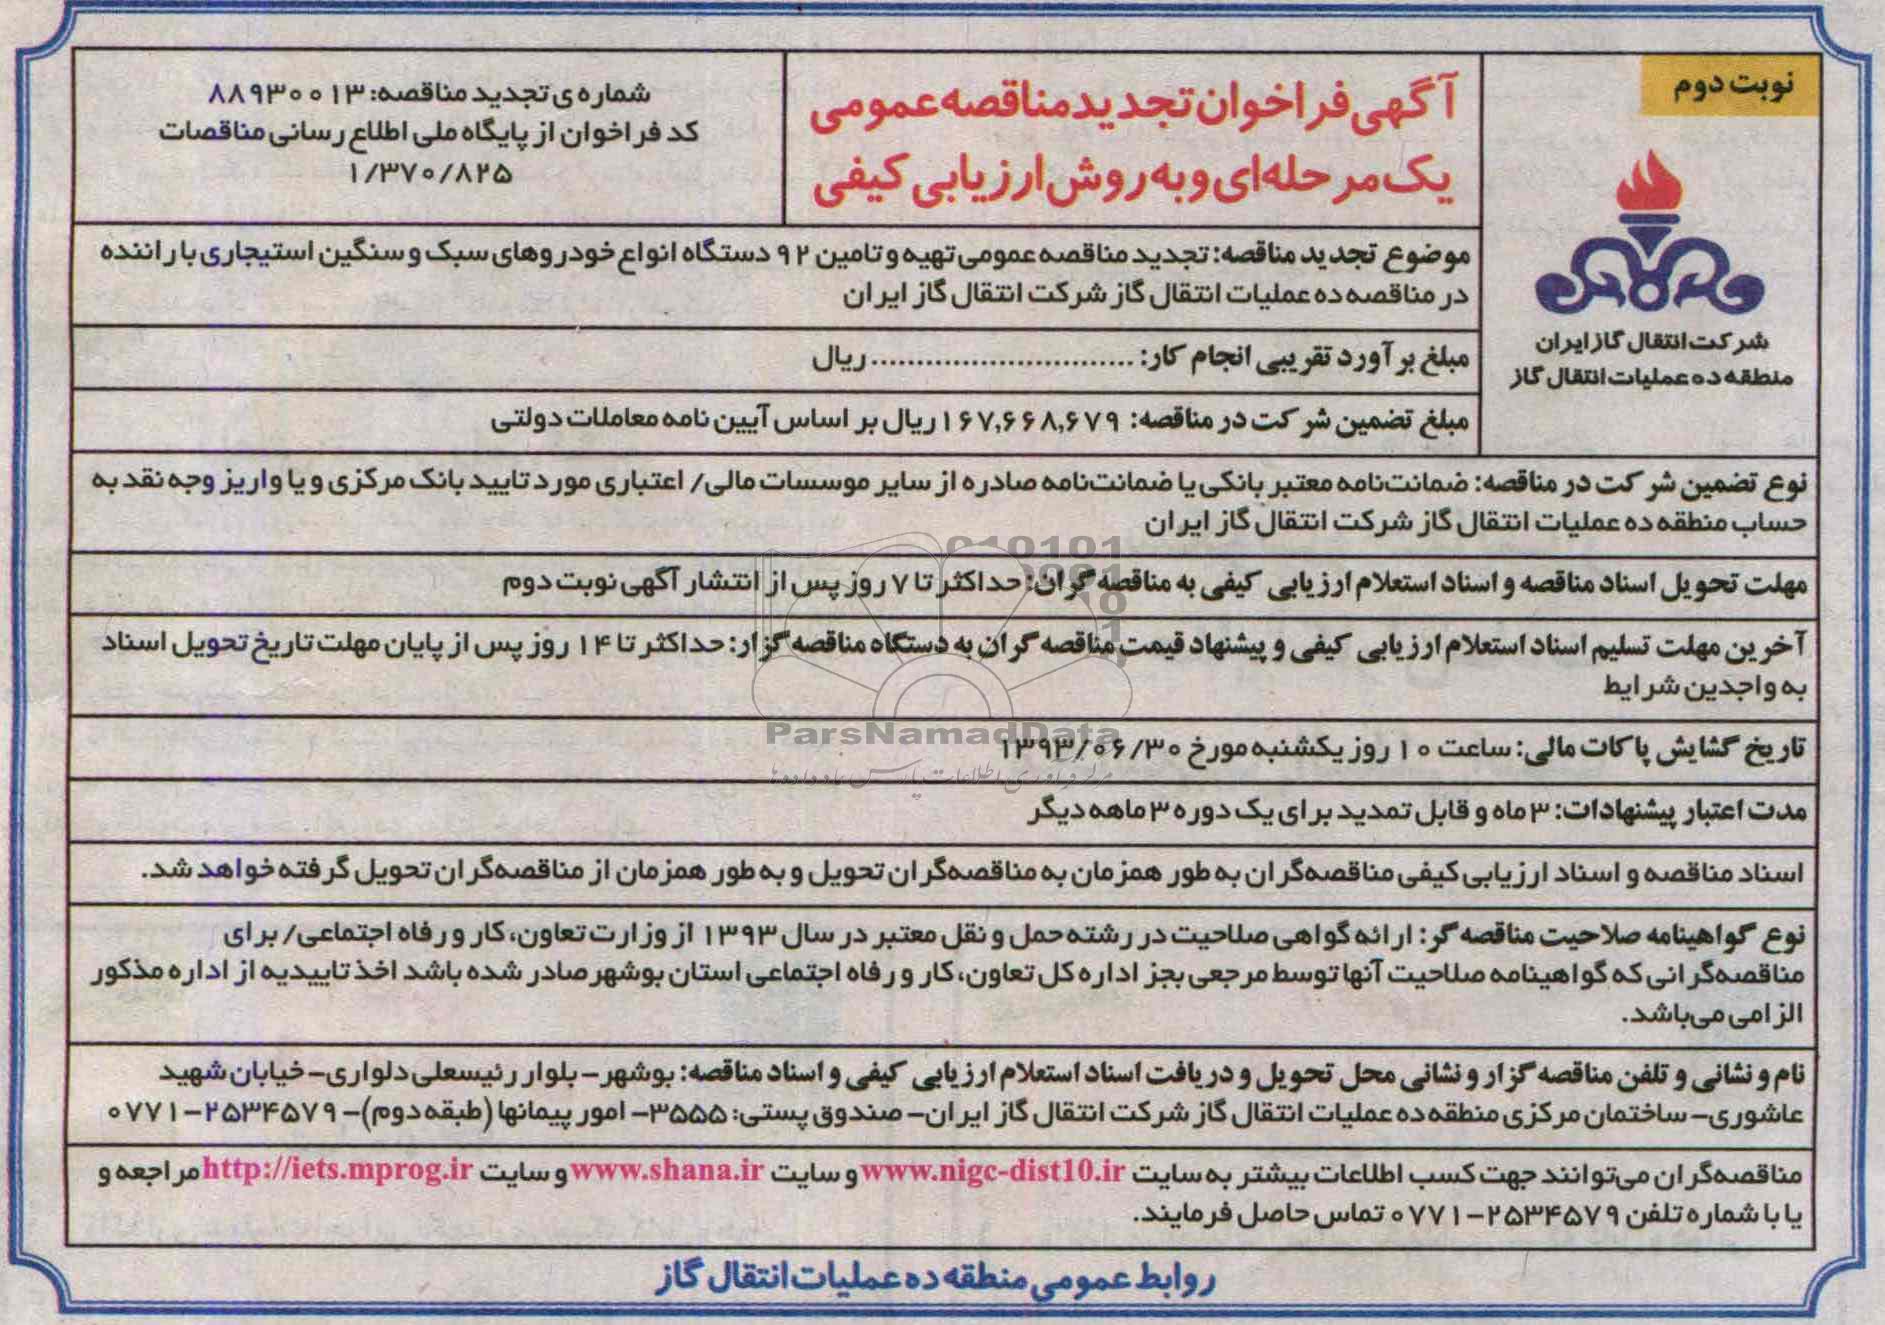 نوبت دوم
شرکت انتقال گاز ایران
منطقه ده عملیات انتقال گاز
آگهی فراخوان تجدید مناقصه عمومی
یک مرحله‌ای و به روش ارزیابی کیفی
شماره ی تجدید مناقصه: ۸۸۹۳۰۰۱۳
کد فراخوان از پایگاه ملی اطلاع رسانی مناقصات
۱/۳۷۰/۸۲۵
موضوع تجدید مناقصه: تجدید مناقصه عمومی تهیه و تامین ۹۲ دستگاه انواع خودروهای سبک و سنگین استیجاری با راننده
در مناقصه ده عملیات انتقال گاز شرکت انتقال گاز ایران
مبلغ برآورد تقریبی انجام کار: ............................. ریال
مبلغ تضمین شرکت در مناقصه: ۱۶۷,۶۶۸,۶۷۹ ریال بر اساس آیین نامه معاملات دولتی
نوع تضمین شرکت در مناقصه: ضمانت‌نامه معتبر بانکی یا ضمانت‌نامه صادره از سایر موسسات مالی/ اعتباری مورد تایید بانک مرکزی و یا واریز وجه نقد به
حساب منطقه ده عملیات انتقال گاز شرکت انتقال گاز ایران
مهلت تحویل اسناد مناقصه و اسناد استعلام ارزیابی کیفی به مناقصه گران: حداکثر تا ۷ روز پس از انتشار آگهی نوبت دوم
آخرین مهلت تسلیم اسناد استعلام ارزیابی کیفی و پیشنهاد قیمت مناقصه گران به دستگاه مناقصه گزار: حداکثر تا ۱۴ روز پس از پایان مهلت تاریخ تحویل اسناد
به واجدین شرایط
تاریخ گشایش پاکات مالی: ساعت ۱۰ روز یکشنبه مورخ ۱۳۹۳/۰۶/۳۰
مدت اعتبار پیشنهادات: ۳ ماه و قابل تمدید برای یک دوره ۳ ماهه دیگر
اسناد مناقصه و اسناد ارزیابی کیفی مناقصه‌گران به طور همزمان به مناقصه‌گران تحویل و به طور همزمان از مناقصه‌گران تحویل گرفته خواهد شد.
نوع گواهینامه صلاحیت مناقصه گر: ارائه گواهی صلاحیت در رشته حمل و نقل معتبر در سال ۱۳۹۳ از وزارت تعاون، کار و رفاه اجتماعی/ برای
مناقصه‌گرانی که گواهینامه صلاحیت آنها توسط مرجعی بجز اداره کل تعاون، کار و رفاه اجتماعی استان بوشهر صادر شده باشد اخذ تاییدیه از اداره مذکور
الزامی می‌باشد.
نام و نشانی و تلفن مناقصه گزار و نشانی محل تحویل و دریافت اسناد استعلام ارزیابی کیفی و اسناد مناقصه: بوشهر- بلوار رئیسعلی دلواری- خیابان شهید
عاشوری- ساختمان مرکزی منطقه ده عملیات انتقال گاز شرکت انتقال گاز ایران- صندوق پستی: ۳۵۵۵- امور پیمانها (طبقه دوم)- ۲۵۳۴۵۷۹-۰۷۷۱
مناقصه‌گران می‌توانند جهت کسب اطلاعات بیشتر به سایت www.nigc-dist10.ir و سایت www.shana.ir و سایت http://iets.mprog.ir مراجعه و
یا با شماره تلفن ۲۵۳۴۵۷۹-۰۷۷۱ تماس حاصل فرمایند.
روابط عمومی منطقه ده عملیات انتقال گاز
ParsNamadData